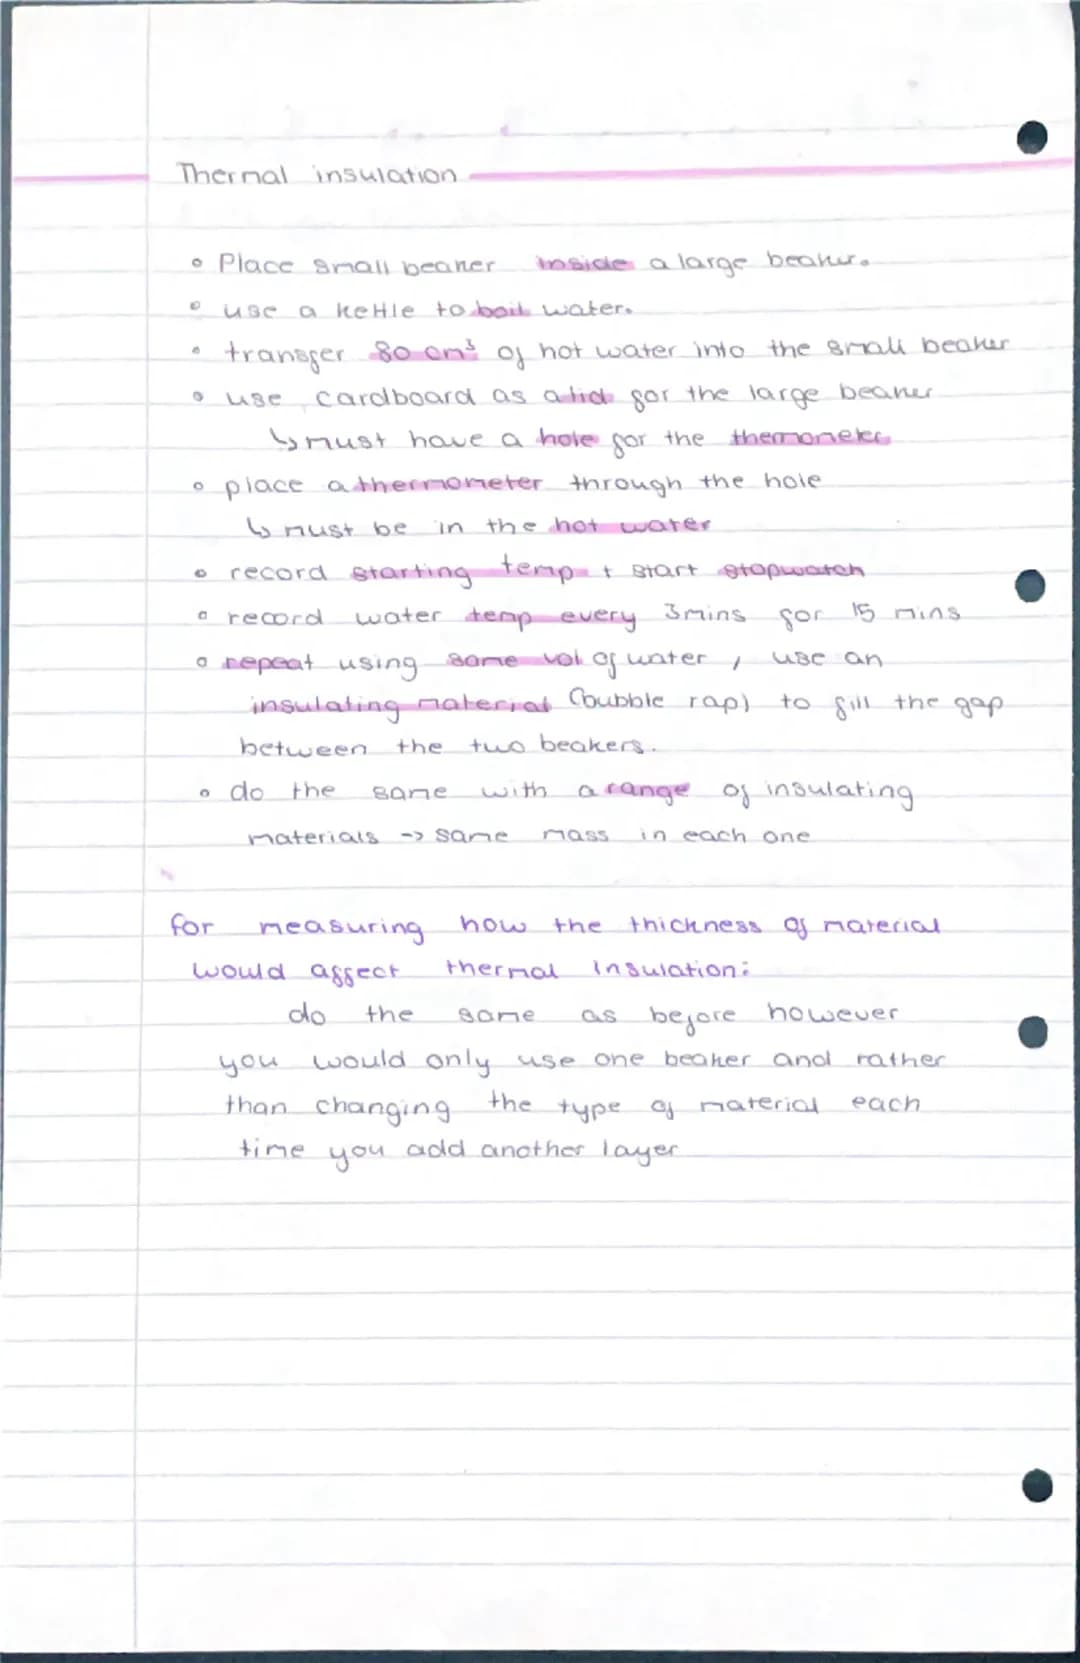 Thermal insulation
• Place small beaker inside a large beaker.
• use a kettle to boil water.
• transfer 80 cm³ of hot water into the small beaker
• use cardboard as a lid for the large beaker
↳ must have a hole for the themometer
• place a thermometer through the hole
↳ must be in the hot water
• record starting temp + start stopwatch
• record water temp every 3mins for 15 mins
• repeat using same vol of water, use an
insulating material (bubble rap) to fill the gap
between the two beakers.
• do the same with a range of insulating
materials -> same mass in each one
for measuring how the thickness of material
would affect thermal insulation:
do the same as before however
you would only use one beaker and rather
than changing the type of material each
time you add another layer